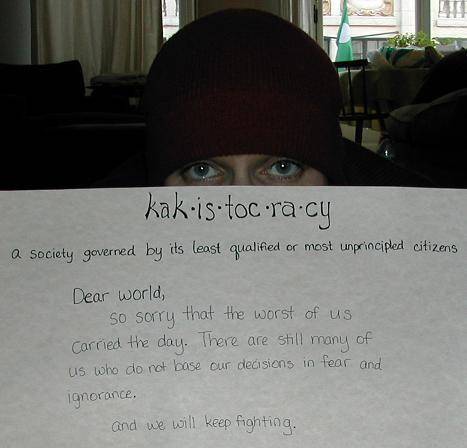 kak·is·toc·ra·cy
a society governed by its least qualified or most unprincipled citizens
Dear world,
so sorry that the worst of us
carried the day. There are still many of
us who do not base our decisions in fear and
ignorance.
and we will keep fighting.